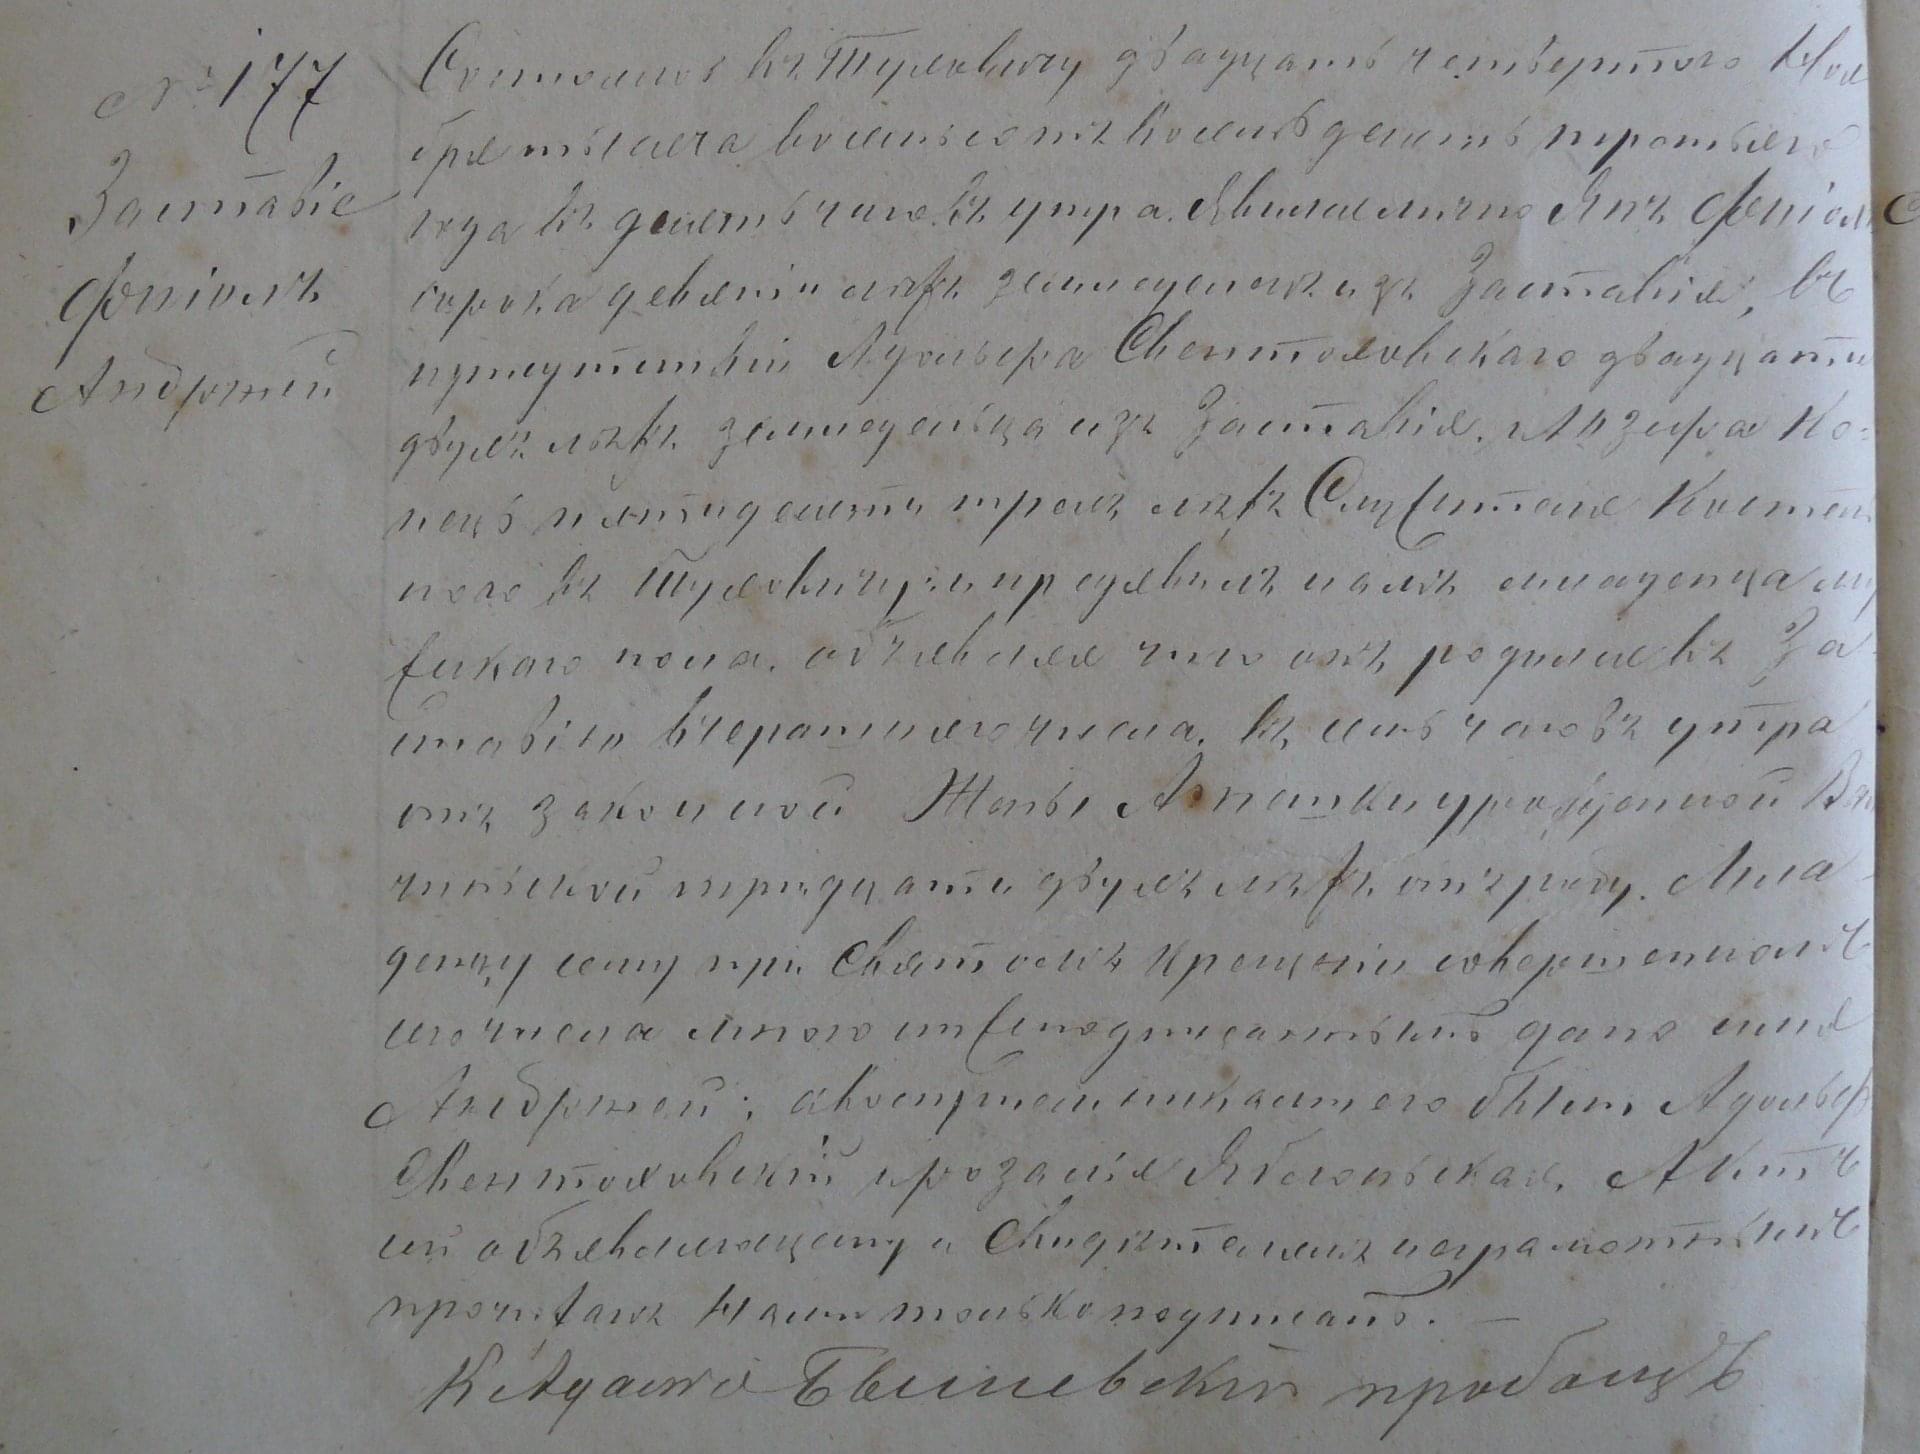 № 177
Заставіе
Фіпіолъ
Андржей
Состоялось въ Туховичу двадцать четвертого Ноя
бря тысяча восемьсотъ восемьдесять третьяго
года въ десять часовъ утра. Явился лично Янъ
сорока девяти лѣтъ земледелецъ изъ Заставія, въ
присутствіи Адольфа Свентоховскаго двадцати
двухъ лѣтъ земледельца изъ Заставія, Ко-
пець пятидесяти трехъ лѣтъ Служителя Костель
ного въ Туховичу; и предъявилъ намъ младенца му
жскаго пола, объявляя что онъ родился въ За-
ставію вчерашняго числа, въ семь часовъ утра
отъ законной Жены Агнешки урожденной
чинской тридцати двухъ лѣтъ отъ роду. Мла-
денцу сему при Святомъ Крещеніи совершенномъ
сего числа мною нижеподписаннымъ дано имя
Андржей; а воспріемниками его были Адольф
Свентоховскій и Розалія Яблоньская, Актъ
сей объявляющему и Свидѣтелямъ неграмотнымъ
прочитанъ Нами только подписанъ. —
К. Адамъ пробощъ